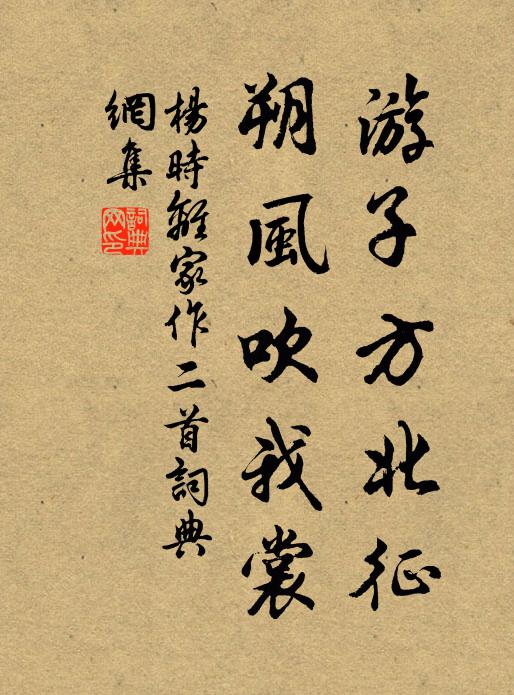 游子方北征
朔風吹我裳
楊時離家作二首詞典
網集
詞典網印